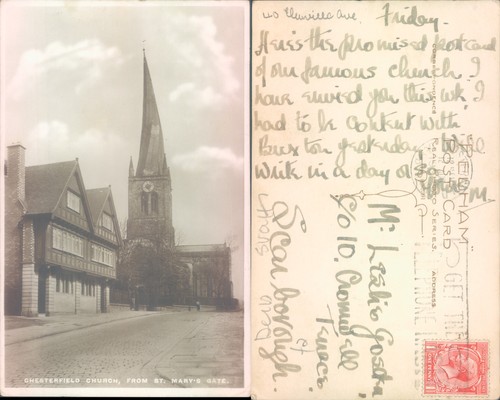 CHESTERFIELD CHURCH, FROM ST. MARY'S GATE.
Friday.
Here's the promised postcard
of our famous church. I
have envied you this wk. I
had to be content with
Buxton yesterday. Will
write in a day or so
M
Mr Leslie
c/o 10. Cromwell
Terrace
Scarborough.
POST CARD
ADDRESS
GET THE
TELEPHONE